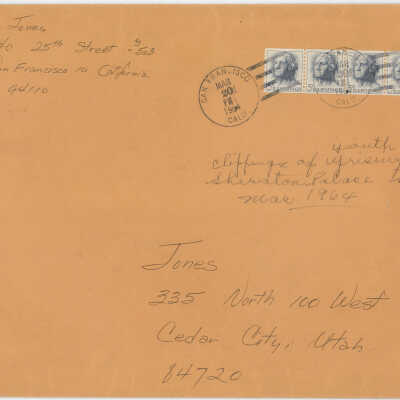 Jones
25th Street
San Francisco 10 California
94110
SAN FRANCISCO
MAR
20
PM
1964
CALIF.
youth
clippings of uprising
Sheraton Palace
Mar 1964
Jones
335 North 100 West
Cedar City, Utah
84720